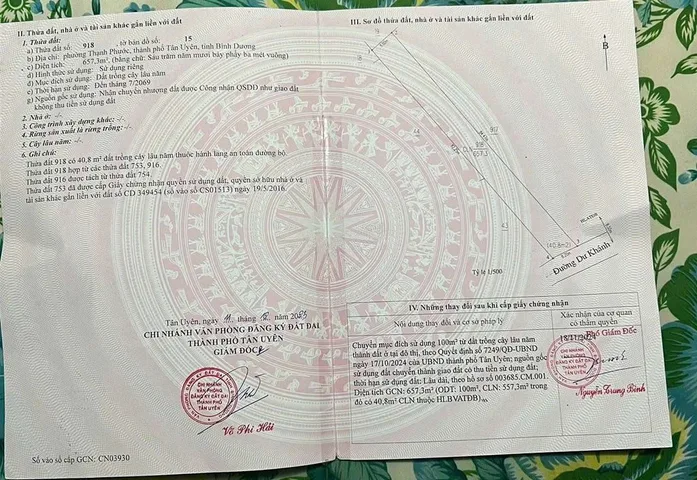 II. Thửa đất, nhà ở và tài sản khác gắn liền với đất
1. Thửa đất:
a) Thửa đất số: 918 , tờ bản đồ số: 15
b) Địa chỉ: phường Thạnh Phước, thành phố Tân Uyên, tỉnh Bình Dương
c) Diện tích: 657,3m², (bằng chữ: Sáu trăm năm mươi bảy phẩy ba mét vuông)
d) Hình thức sử dụng: Sử dụng riêng
đ) Mục đích sử dụng: Đất trồng cây lâu năm
e) Thời hạn sử dụng: Đến tháng 7/2069
g) Nguồn gốc sử dụng: Nhận chuyển nhượng đất được Công nhận QSDĐ như giao đất
không thu tiền sử dụng đất
2. Nhà ở: -/-
3. Công trình xây dựng khác: -/-
4. Rừng sản xuất là rừng trồng: -/-
5. Cây lâu năm: -/-
6. Ghi chú:
Thửa đất 918 có 40,8 m² đất trồng cây lâu năm thuộc hành lang an toàn đường bộ.
Thửa đất 918 hợp từ các thửa đất 753, 916.
Thửa đất 916 được tách từ thửa đất 754.
Thửa đất 753 đã được cấp Giấy chứng nhận quyền sử dụng đất, quyền sở hữu nhà ở và
tài sản khác gắn liền với đất số CD 349454 (số vào sổ CS01513) ngày 19/5/2016.
Tân Uyên, ngày 11 tháng năm
CHI NHÁNH VĂN PHÒNG ĐĂNG KÝ ĐẤT ĐAI
THÀNH PHỐ TÂN UYÊN
GIÁM ĐỐC
CHI NHÁNH
VĂN PHÒNG
ĐĂNG KÝ ĐẤT ĐAI
THÀNH PHỐ
TÂN UYÊN
Võ Phi Hải
Số vào sổ cấp GCN: CN03930
III. Sơ đồ thửa đất, nhà ở và tài sản khác gắn liền với đất
B
44
917
918
CLN
657.3
43
(40.8m2)
Đường Dư Khánh
Tỷ lệ 1/500
IV. Những thay đổi sau khi cấp giấy chứng nhận
Nội dung thay đổi và cơ sở pháp lý
Xác nhận của cơ quan
có thẩm quyền
Chuyển mục đích sử dụng 100m² từ đất trồng cây lâu năm
thành đất ở tại đô thị, theo Quyết định số 7249/QĐ-UBND
ngày 17/10/2024 của UBND thành phố Tân Uyên; nguồn gốc
sử dụng đất chuyển thành giao đất có thu tiền sử dụng đất;
thời hạn sử dụng: Lâu dài, theo hồ sơ số 003685.CM.001.
Diện tích GCN: 657,3m² (ODT: 100m², CLN: 557,3m² trong
đó có 40,8m² CLN thuộc HLBVATĐB)
Phó Giám Đốc
CHI NHÁNH
VĂN PHÒNG
ĐĂNG KÝ ĐẤT ĐAI
THÀNH PHỐ
TÂN UYÊN
Nguyễn Trung Bình